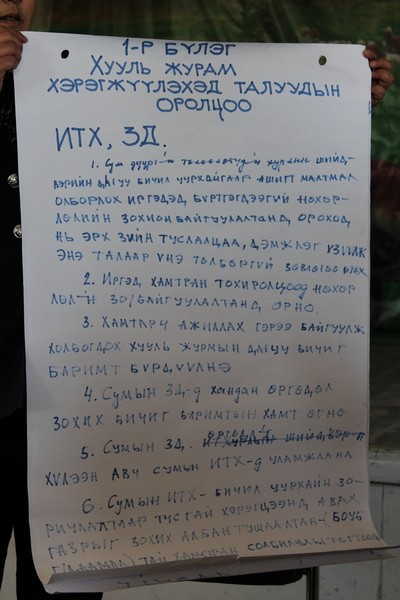 1-Р БҮЛЭГ
ХУУЛЬ ЖУРАМ
ХЭРЭГЖҮҮЛЭХЭД ТАЛУУДЫН
ОРОЛЦОО
ИТХ, ЗД.
1. Сум дүүргийн төлөөлөгчдийн хурлын шийд-
вэрийн дагуу бичил уурхайгаар ашигт малтмал
олборлох иргэдэд, бүртгэгдээгүй нөхөр-
лөлийн зохион байгуулалтанд ороход
нь эрх зүйн туслалцаа, дэмжлэг үзүүлж
энэ талаар үнэ төлбөргүй зөвлөгөө өгөх.
2. Иргэд хамтран тохиролцоод нөхөр
лөл-н зо/байгуулалтанд орно.
3. Хамтарч ажиллах гэрээ байгуулж
холбогдох хууль журмын дагуу бичиг
баримт бүрдүүлнэ
4. Сумын ЗД-д хандан өргөдөл
зохих бичиг баримтын хамт өгнө
5. Сумын ЗД. өргөдлийг
хүлээн авч сумын ИТХ-д уламжлана
6. Сумын ИТХ- бичил уурхайн зо-
риулалтаар тусгай хэрэгцээнд авах
газрыг зохих албан тушаалтан-(БОУБ
тай хамтран солбилцлыг тогтоож